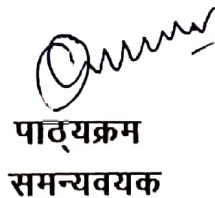 पाठ्यक्रम
समन्यवयक